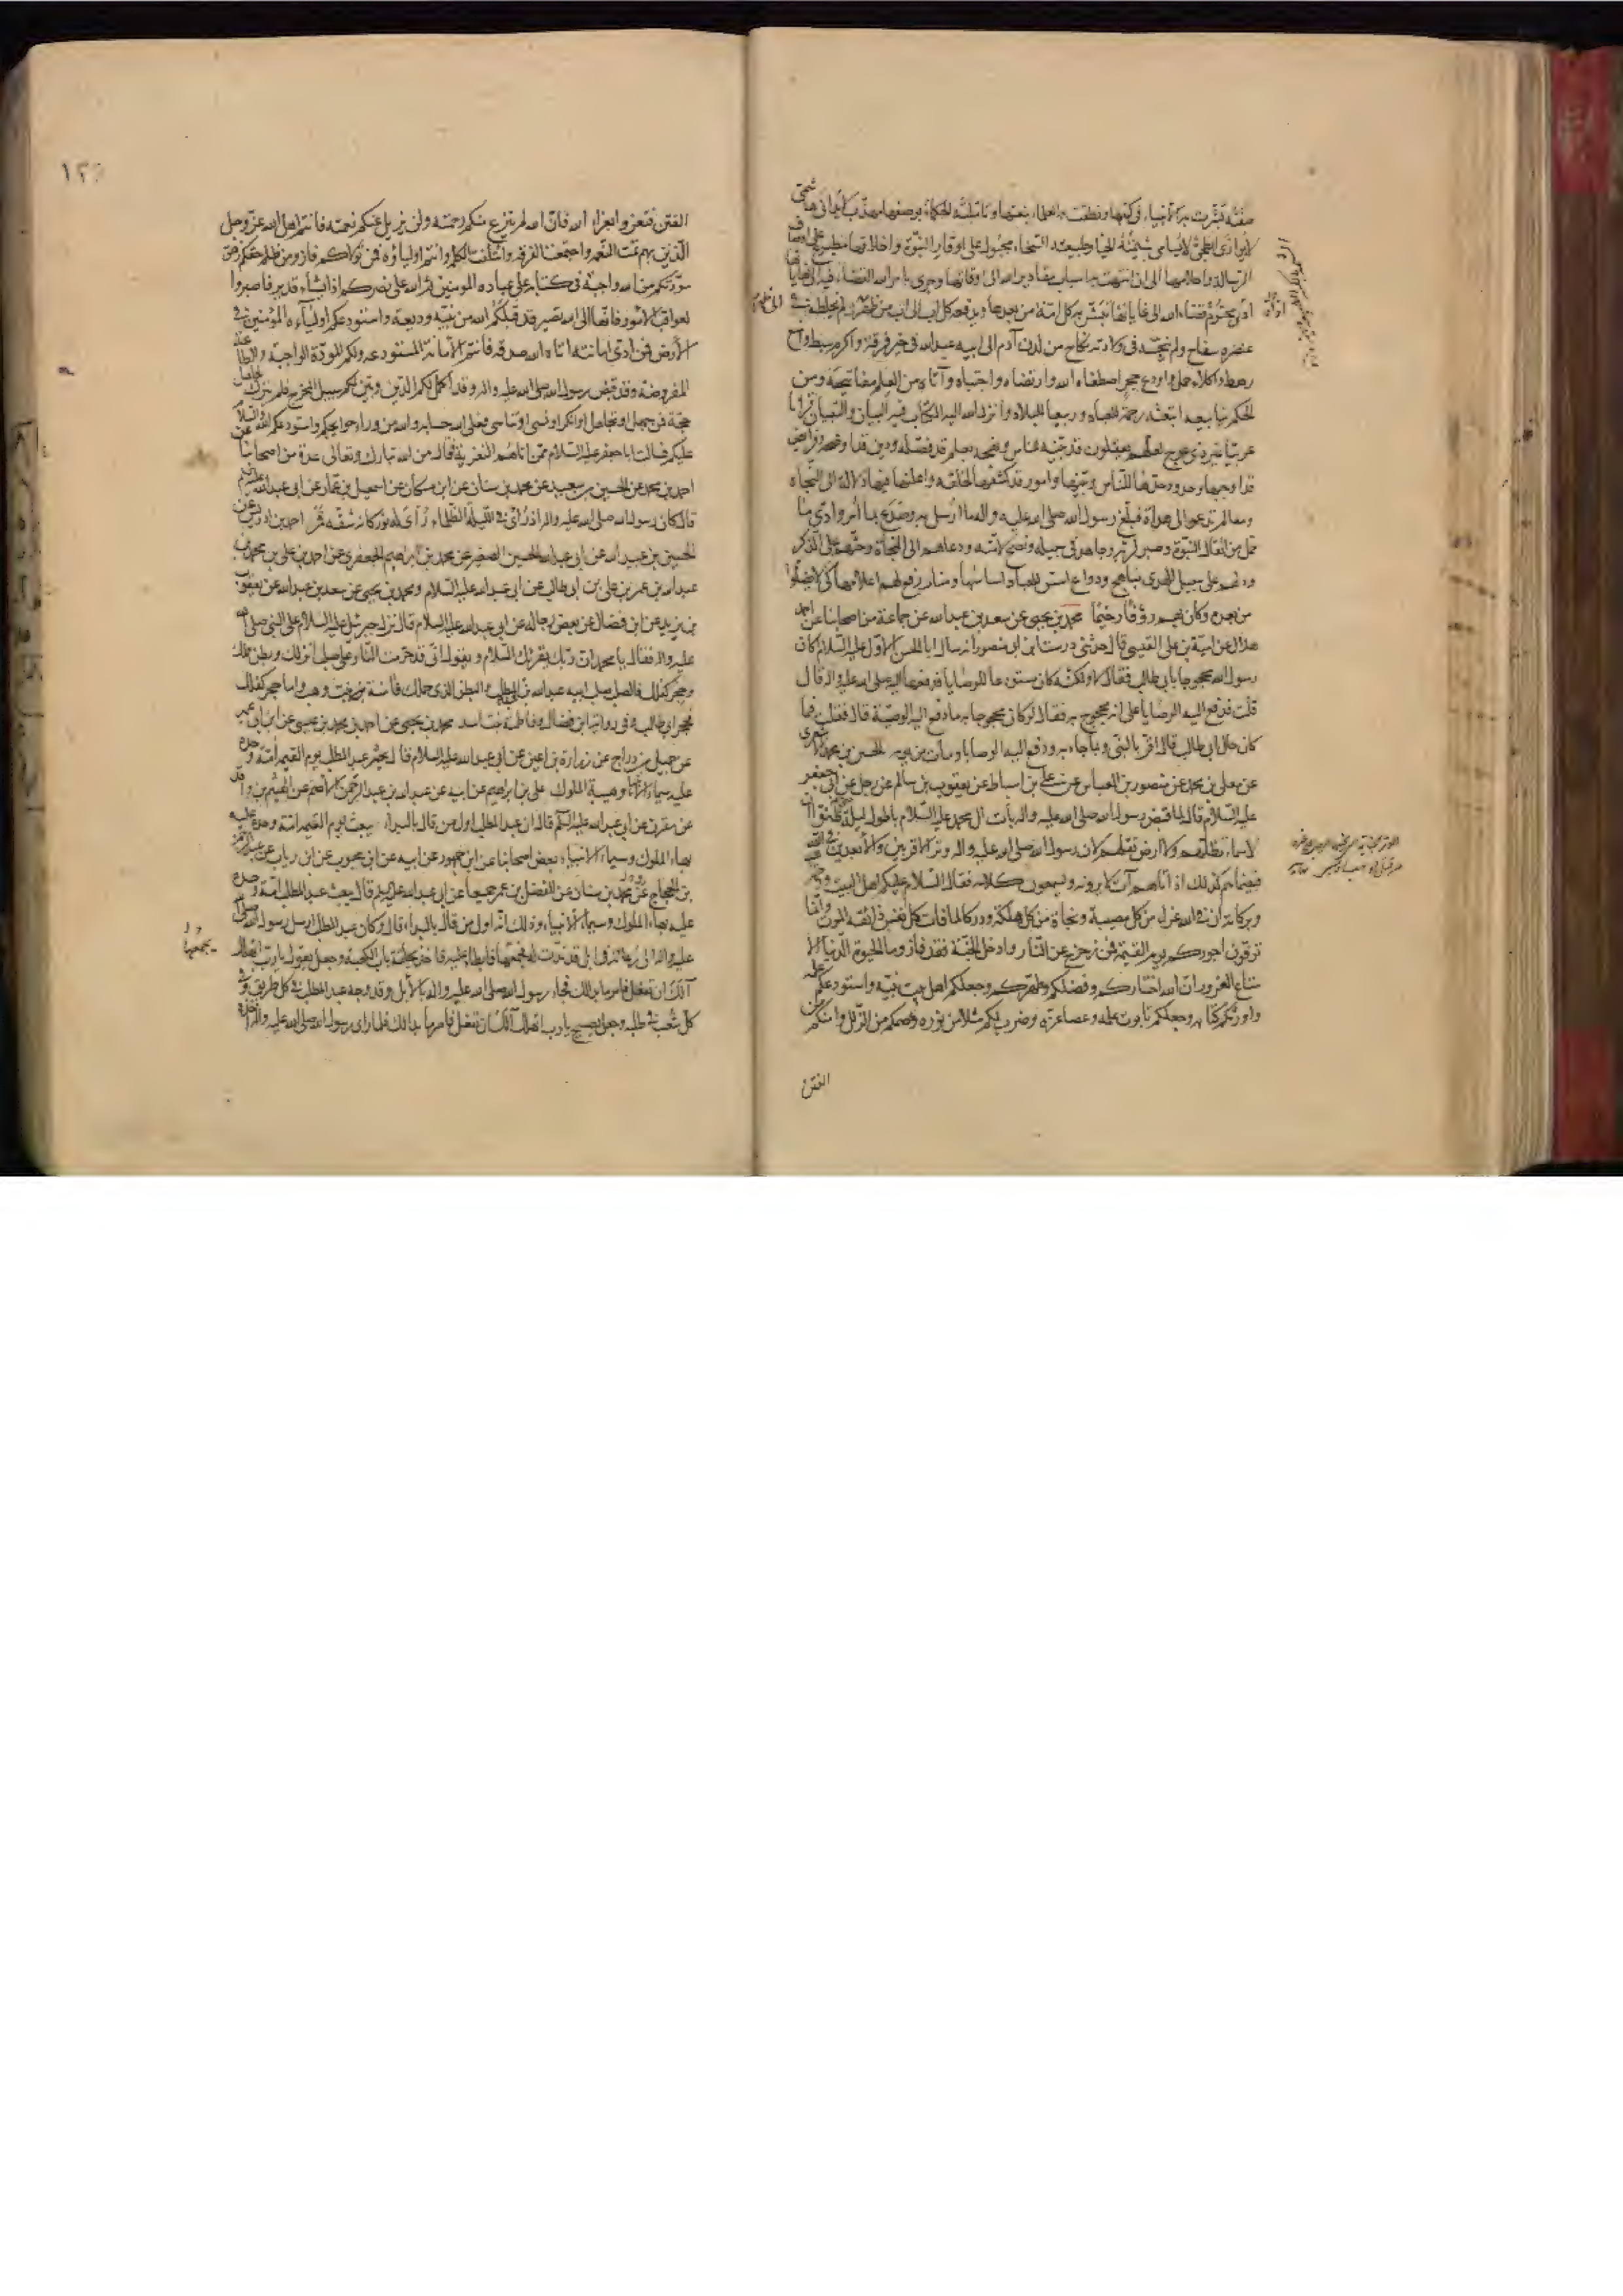 صفته تبشّرت به الأنبياء في كتبها ونطقت به العلماء بنعتها وتأملته الحكماء بوصفها مهذّب لا يدانى هاشمي
لا يوازى ابطحيّ لا يسامى شيمته الحياء وطبيعته السخاء مجبول على اوقار النبوّة واخلاقها مطبوع على اوصاف
الرسالة واحلامها الى ان انتهت به اسباب مقادير الله الى اوقاتها وجرى بامر الله القضاء فيه الى نهاياتها
ادّى محتوم قضاء الله الى غاياتها تبشّر به كل امّة من بعدها ويدفعه كل اب الى اب من ظهر الى ظهر لم يخلطه في
عنصره سفاح ولم ينجّسه في ولادته نكاح من لدن آدم الى ابيه عبد الله في خير فرقة واكرم سبط وامنع
رهط واكلاء حمل واودع حجر اصطفاه الله وارتضاه واجتباه وآتاه من العلم مفاتيحه ومن
الحكم ينابيعه ابتعثه رحمة للعباد وربيعا للبلاد وانزل الله اليه الكتاب فيه البيان والتبيان قرآنا
عربيّا غير ذي عوج لعلّهم يتّقون قد بيّنه للناس ونهجه بعلم قد فصّله ودين قد اوضحه وفرائض
قد اوجبها وحدود حدّها للنّاس وبيّنها وامور قد كشفها لخلقه واعلنها فيها دلالة الى النّجاة
ومعالم تدعو الى هداه فبلّغ رسول الله صلى الله عليه واله ما ارسل به وصدع بما امر وادّى ما
حمل من اثقال النبوّة وصبر لربّه وجاهد في سبيله ونصح لامّته ودعاهم الى النجاة وحثّهم على الذكر
ودلّهم على سبيل الهدى بمناهج ودواع اسّس للعباد اساسها ومنار رفع لهم اعلامها كي لا يضلّوا
من بعده وكان بهم رؤفا رحيما محمد بن يحيى عن سعد بن عبد الله عن جماعة من اصحابنا عن احمد
هلال عن امية بن علي القيسي قال حدثني درست ابن ابي منصور انه سال ابا الحسن الاول عليه السلام اكان
رسول الله محجوجا بابي طالب فقال لا ولكنّه كان مستودعا للوصايا فدفعها اليه صلى الله عليه واله قال
قلت فدفع اليه الوصايا على انه محجوج به فقال لو كان محجوجا به ما دفع اليه الوصيّة قال فقلت فما
كان حال ابي طالب قال اقرّ بالنبي وبما جاء به ودفع اليه الوصايا ومات من يومه الحسين بن محمد الاشعري
عن معلى بن محمد عن منصور بن العباس عن علي بن اسباط عن يعقوب بن سالم عن رجل عن ابي جعفر
عليه السلام قال لما قبض رسول الله صلى الله عليه واله بات ال محمد عليه السلام باطول ليلة حتى ظنّوا ان
لا سماء تظلّهم ولا ارض تقلّهم لان رسول الله صلى الله عليه واله وتر الاقربين والابعدين في الله
فبيناهم كذلك اذ اتاهم آت لا يرونه ويسمعون كلامه فقال السلام عليكم اهل البيت ورحمة الله
وبركاته ان في الله عزاء من كل مصيبة ونجاة من كل هلكة ودركا لما فات كل نفس ذائقة الموت وانّما
توفون اجوركم يوم القيمة فمن زحزح عن النّار وادخل الجنّة فقد فاز وما الحيوة الدنيا الا
متاع الغرور انّ الله اختاركم وفضّلكم وطهّركم وجعلكم اهل بيت نبيّه واستودعكم علمه
واورثكم كتابه وجعلكم تابوت علمه وعصا عزّه وضرب لكم مثلا من نوره وعصمكم من الزلل وامنكم من
الفتن
١٢
الفتن فتعزّوا بعزاء الله فانّ الله لم ينزع منكم رحمته ولن يزيل عنكم نعمته فانتم اهل الله عزّ وجل
الّذين بهم تمّت النّعمه واجتمعت الفرقة وائتلفت الكلمة وانتم اولياؤه فمن تولاّكم فاز ومن ظلم حقّكم زهق
مودّتكم من الله واجبة في كتابه على عباده المومنين ثم الله على نصركم اذا يشاء قدير فاصبروا
لعواقب الامور فانها الى الله تصير قد قبلكم الله من نبيّه وديعة واستودعكم اولياءه المؤمنين في
الأرض فمن ادّى امانته اتاه الله صدقه فانتم الأمانة المستودعه ولكم المودّة الواجبة والطاعة
المفروضة وقد قبض رسول الله صلى الله عليه واله وقد اكمل لكم الدّين وبيّن لكم سبيل المخرج فلم يترك لجاهل
حجّة فمن جهل او تجاهل او انكر او نسي او تناسى فعلى الله حسابه والله من وراء حوايجكم واستودعكم الله والسلام
عليكم فسالت ابا جعفر عليه السلام ممّن اتاهم التّعزية فقال من الله تبارك وتعالى عدة من اصحابنا عن
احمد بن محمد عن الحسين بن سعيد عن محمد بن سنان عن ابن مسكان عن اسمعيل بن عمار عن ابي عبد الله عليه السلام
قال كان رسول الله صلى الله عليه واله اذا رئي في الليلة الظلماء رُاى له نور كانه شقّه قمر احمد بن ادريس عن
الحسين بن عبيد الله عن ابي عبد الله الحسين الصغير عن محمد بن ابراهيم الجعفري عن احمد بن علي بن محمد بن
عبد الله بن عمر بن علي بن ابي طالب عن ابي عبد الله عليه السلام ومحمد بن يحيى عن سعد بن عبد الله عن يعقوب
بن يزيد عن ابن فضال عن بعض رجاله عن ابي عبد الله عليه السلام قال نزل جبرئيل عليه السلام على النبي صلى الله
عليه واله فقال يا محمد ان ربّك يقرئك السّلام ويقول انّي قد حرّمت النّار على صلب انزلك وبطن حملك
وحجر كفلك فالصلب صلب ابيه عبد الله بن عبد المطلب والبطن الذي حملك فآمنة بنت وهب واما حجر كفلك
فحجر ابي طالب وفي رواية ابن فضال وفاطمة بنت اسد محمد بن يحيى عن احمد بن محمد بن عيسى عن ابن ابي عمير
عن جميل بن دراج عن زرارة بن اعين عن ابي عبد الله عليه السلام قال يحشر عبد المطلب يوم القيمة امّة وحده
عليه سيماء الانبياء وهيبة الملوك علي بن ابراهيم عن ابيه عن عبد الله بن عبد الرحمن الاصم عن الهيثم بن واقد
عن مقرن عن ابي عبد الله عليه السلم قال ان عبد المطلب اول من قال بالبداء يبعث يوم القيمة امّة وحده عليه
بهاء الملوك وسيماء الانبياء بعض اصحابنا عن ابن جمهور عن ابيه عن ابن محبوب عن ابن رياب عن عبد الرحمن
بن الحجاج وعن محمد بن سنان عن المفضل بن عمر جميعا عن ابي عبد الله عليه السلم قال يبعث عبد المطلب امّة وحده
عليه بهاء الملوك وسيماء الأنبياء وذلك انّه اول من قال بالبداء قال وكان عبد المطلب ارسل رسول الله صلى الله
عليه واله الى رعاته في ابل قد ندّت له فجمعها فابطا عليه فاخذ بحلقة باب الكعبة وجعل يقول يا ربّ اتهلك
آلك ان تفعل فامر ما بدالك فجاء رسول الله صلى الله عليه واله بالأبل وقد وجه عبد المطلب في كل طريق وفي
كل شعب في طلبه وجعل يصيح يا رب اتهلك آلك ان تفعل فامر ما بدالك فلما راى رسول الله صلى الله عليه واله اخذه
يجمعها